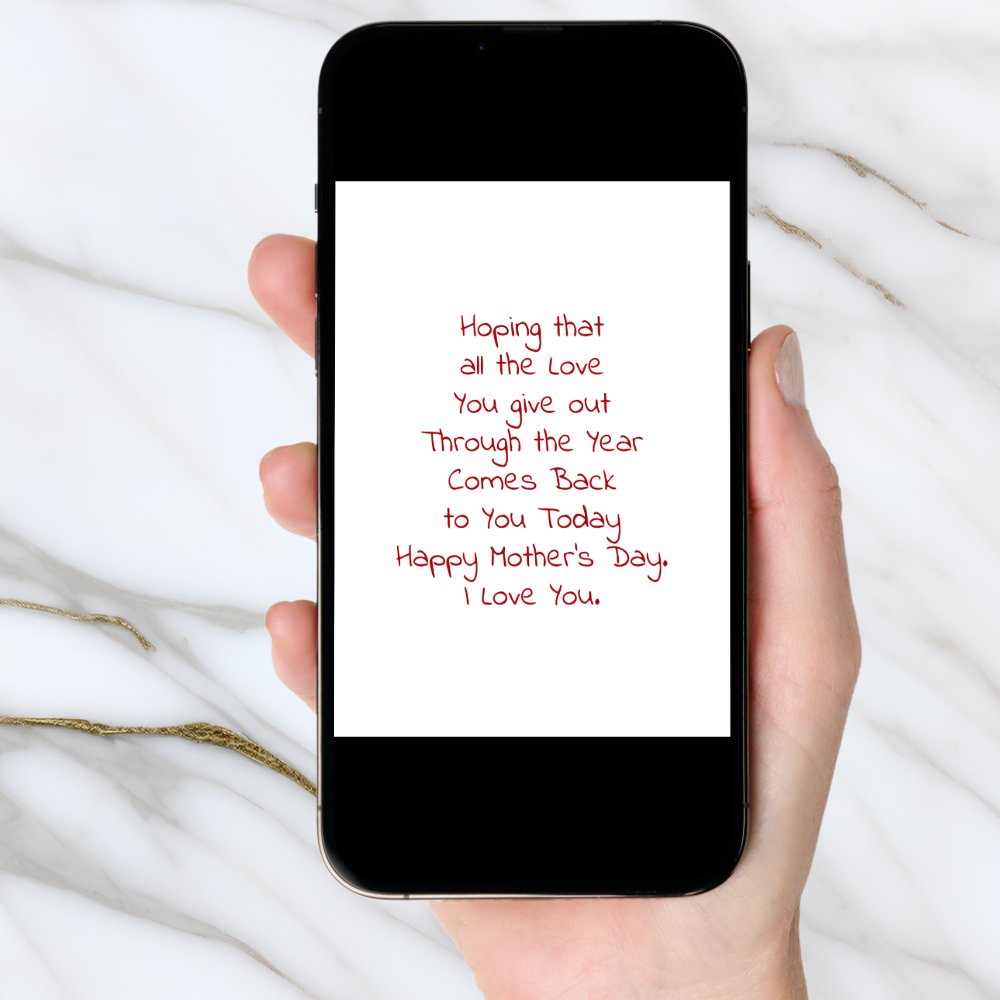 Hoping that
all the Love
You give out
Through the Year
Comes Back
to You Today
Happy Mother's Day.
I Love You.